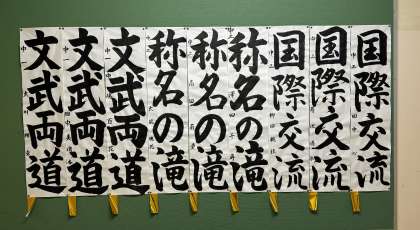 国際交流
国際交流
国際交流
称名の滝
称名の滝
称名の滝
文武両道
文武両道
文武両道